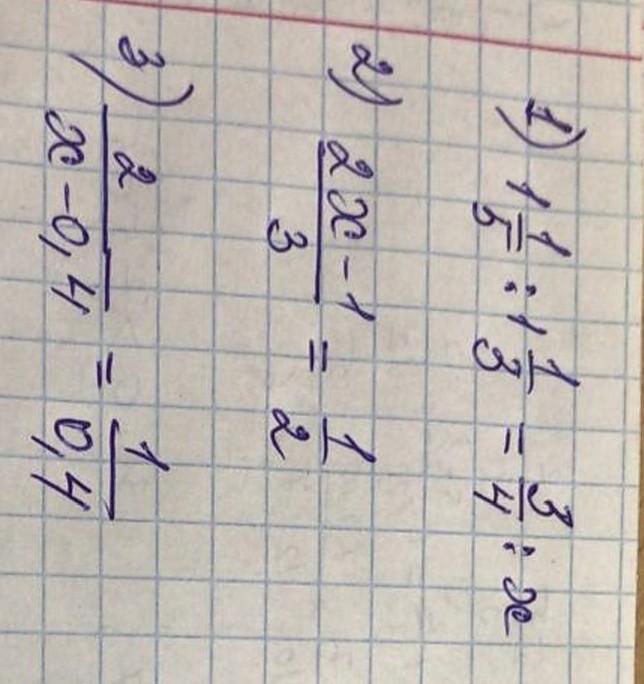 1) 1 1/5 : 1 1/3 = 3/4 : x
2) (2x-1)/3 = 1/2
3) 2/(x-0,4) = 1/0,4